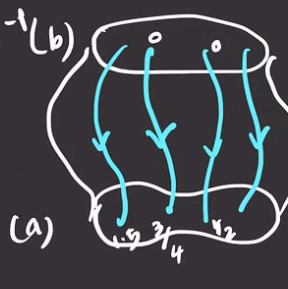 -1(b)
(a)
1.5 3/4 1/2